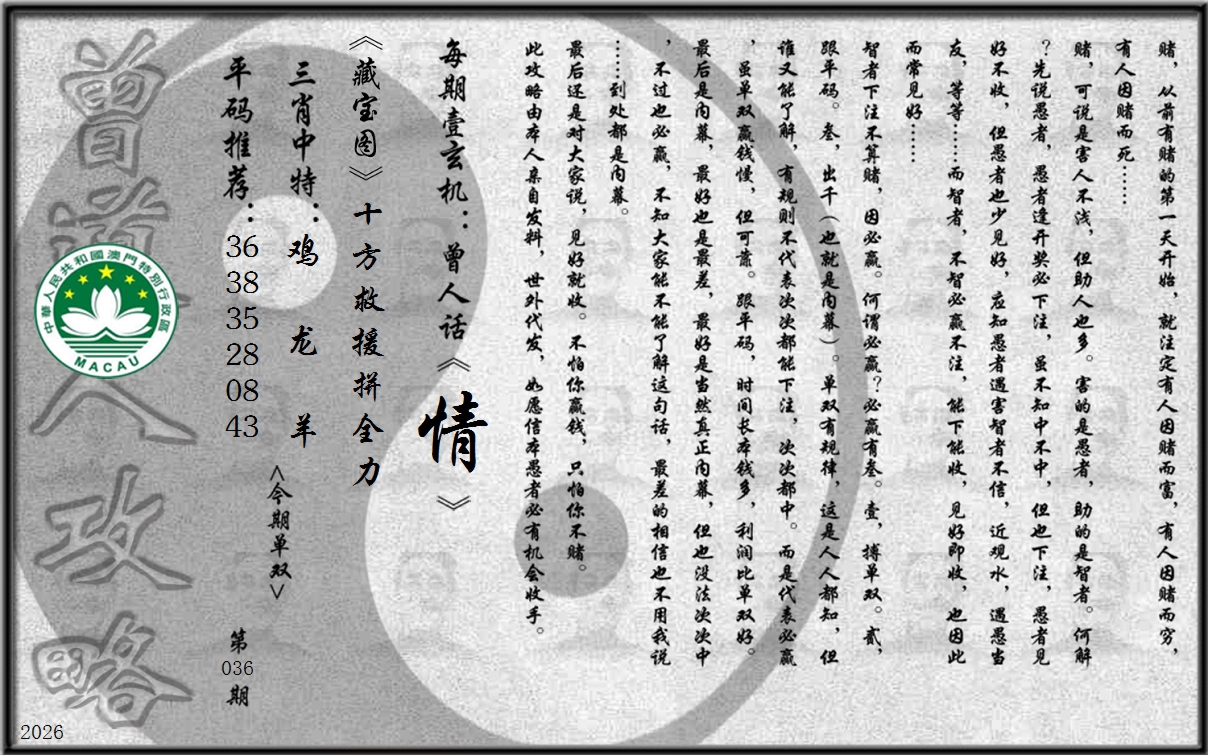 赌，从前有赌的第一天开始，就注定有人因赌而富，有人因赌而穷，
有人因赌而死……
赌，可说是害人不浅，但助人也多。害的是愚者，助的是智者。何解
？先说愚者，愚者逢开奖必下注，虽不知中不中，但也下注，愚者见
好不收，但愚者也少见好，应知愚者遇害智者不信，近观水，遇愚当
友，等等……而智者，不智必赢不注，能下能收，见好即收，也因此
而常见好……
智者下注不算赌，因必赢。何谓必赢？必赢有叁。壹，搏单双。贰，
跟平码。叁，出千（也就是内幕）。单双有规律，这是人人都知，但
谁又能了解，有规则不代表次次都能下注，次次都中。而是代表必赢
，虽单双赢钱慢，但可靠。跟平码，时间长本钱多，利润比单双好。
最后是内幕，最好也是最差，最好是当然真正内幕，但也没法次次中
，不过也必赢，不知大家能不能了解这句话，最差的相信也不用我说
……到处都是内幕。
最后还是对大家说，见好就收。不怕你赢钱，只怕你不赌。
此攻略由本人亲自发料，世外代发，如愿信本愚者必有机会收手。
每期壹玄机：曾人话《情》
《藏宝图》十方救援拼全力
三肖中特：鸡 龙 羊
<今期单双>
平码推荐：36 38 35 28 08 43
第036期
曾道人攻略
中華人民共和國澳門特別行政區
MACAU
2026